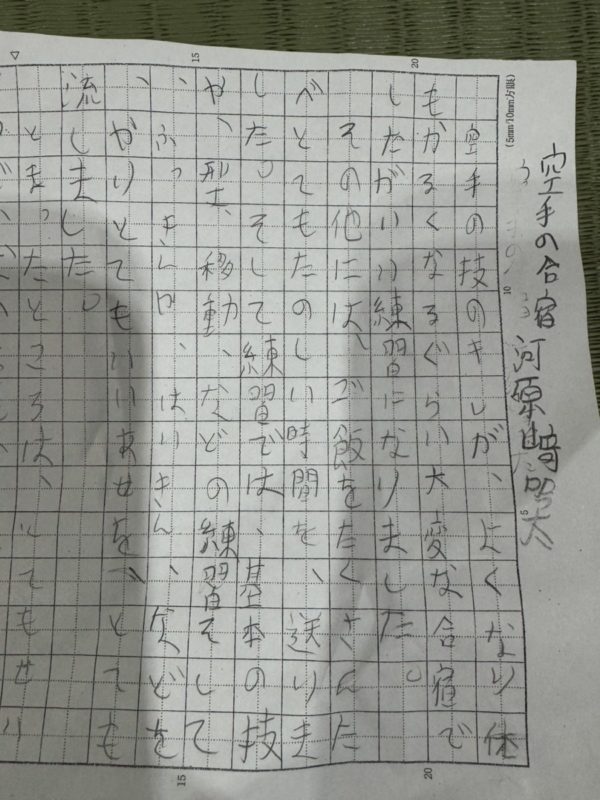 空手の合宿 河原崎
空手の技のキレが、よくなり体
もかるくなるぐらい大変な合宿で
したがいい練習になりました。
その他には、ご飯をたくさんた
べとてもたのしい時間を、送りま
した。そして練習では、基本の技
や、型、移動、などの練習そして
、ふっきんや、はいきん、などを
、やりとてもいいあせを、とても
流しました。
とまったところは、
てもせ
(5mm/10mm方眼)
20
15
10
5
20
15